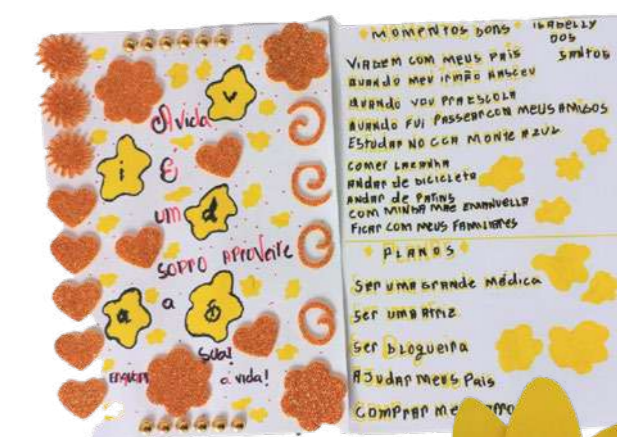 A vida
v
i
É
um
d
sopro APROVEITE
a
a
6
SUA!
a vida!
MOMENTOS BONS
ISABELLY
DOS
SANTOS
VIAGEM COM MEUS PAIS
QUANDO MEU IRMÃO NASCEU
QUANDO VOU PRA ESCOLA
QUANDO FUI PASSEAR COM MEUS AMIGOS
ESTUDAR NO CCA MONTE AZUL
COMER LASANHA
ANDAR de BICICLETA
ANDAR de PATINS
COM MINHA MÃE EMANUELLA
FICAR COM MEUS FAMILIARES
PLANOS
SER UMA GRANDE Médica
SER UMA ATRIZ
SER BLOGUEIRA
AJUDAR MEUS PAIS
COMPRAR